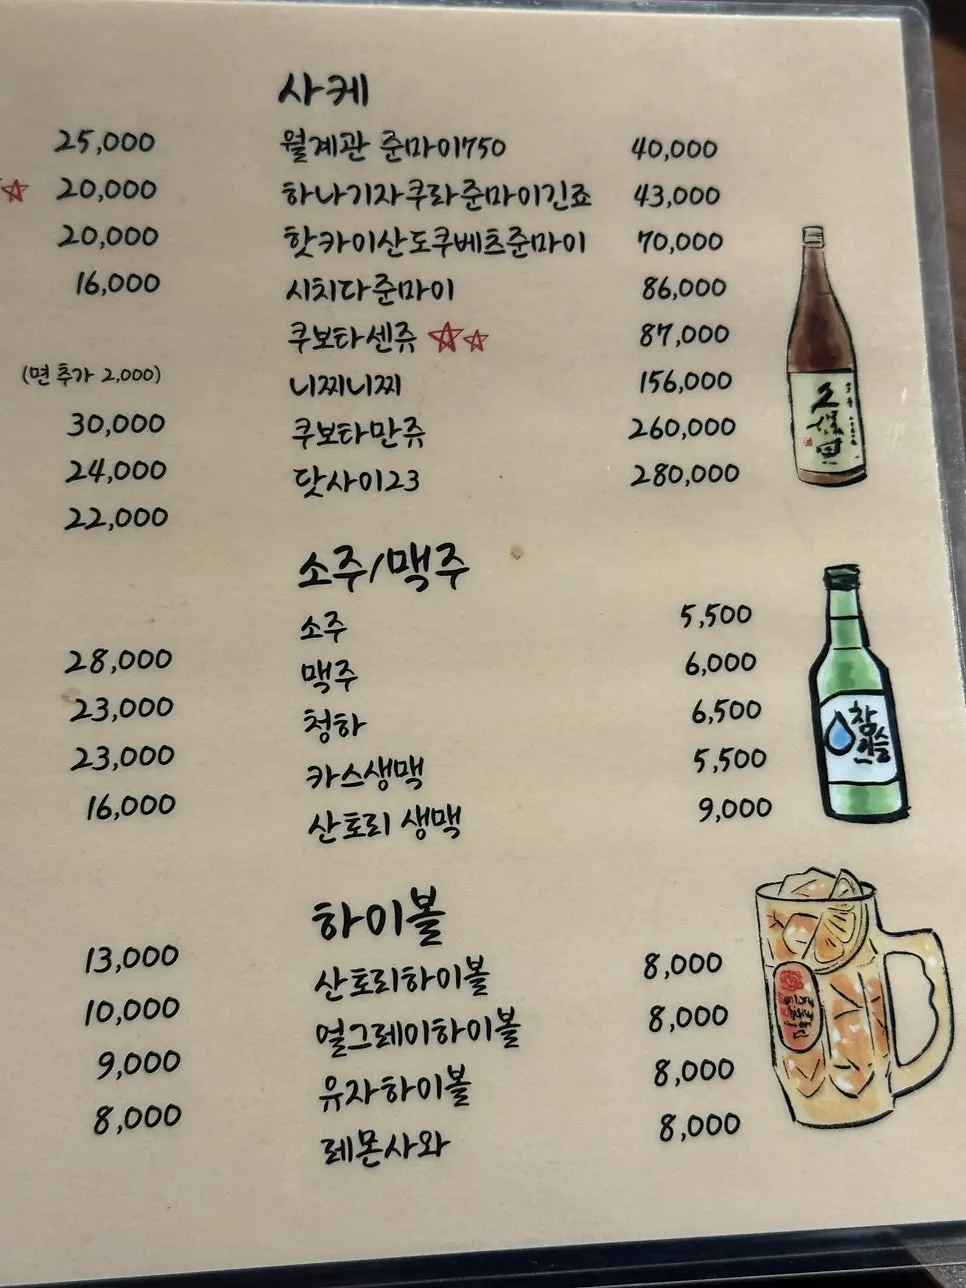 25,000
20,000
20,000
16,000
(면 추가 2,000)
30,000
24,000
22,000
28,000
23,000
23,000
16,000
13,000
10,000
9,000
8,000
사케
월계관 준마이750 40,000
하나기자쿠라준마이긴죠 43,000
핫카이산도쿠베츠준마이 70,000
시치다준마이 86,000
쿠보타센쥬 87,000
니찌니찌 156,000
쿠보타만쥬 260,000
닷사이23 280,000
久保田
소주/맥주
소주 5,500
맥주 6,000
청하 6,500
카스생맥 5,500
산토리 생맥 9,000
참
이슬
하이볼
산토리하이볼 8,000
얼그레이하이볼 8,000
유자하이볼 8,000
레몬사와 8,000